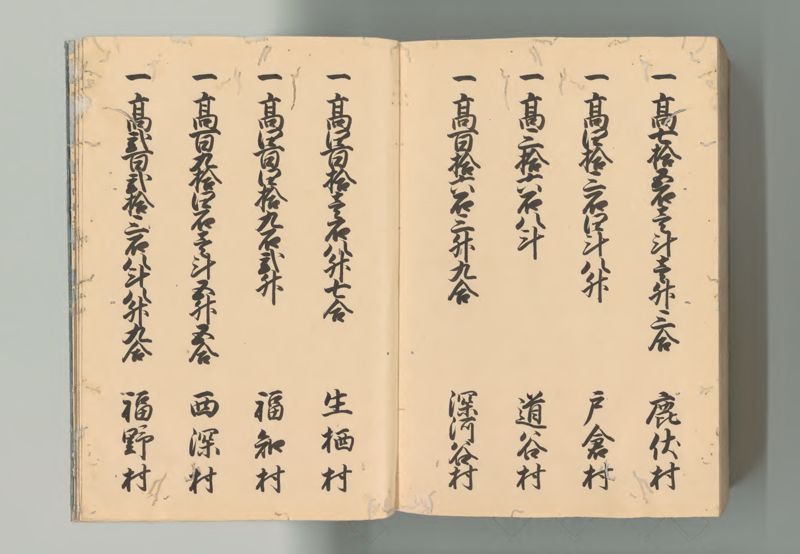 一 髙七拾五石壱斗壱升三合 鹿伏村
一 髙四拾三石四斗八升 戸倉村
一 髙三拾六石八斗 道谷村
一 髙百拾六石三升九合 深河谷村
一 髙四百拾壱石八升七合 生栖村
一 髙四百四拾九石弐升 福知村
一 髙百九拾四石壱斗五升五合 西深村
一 髙弐百弐拾三石八斗八升九合 福野村